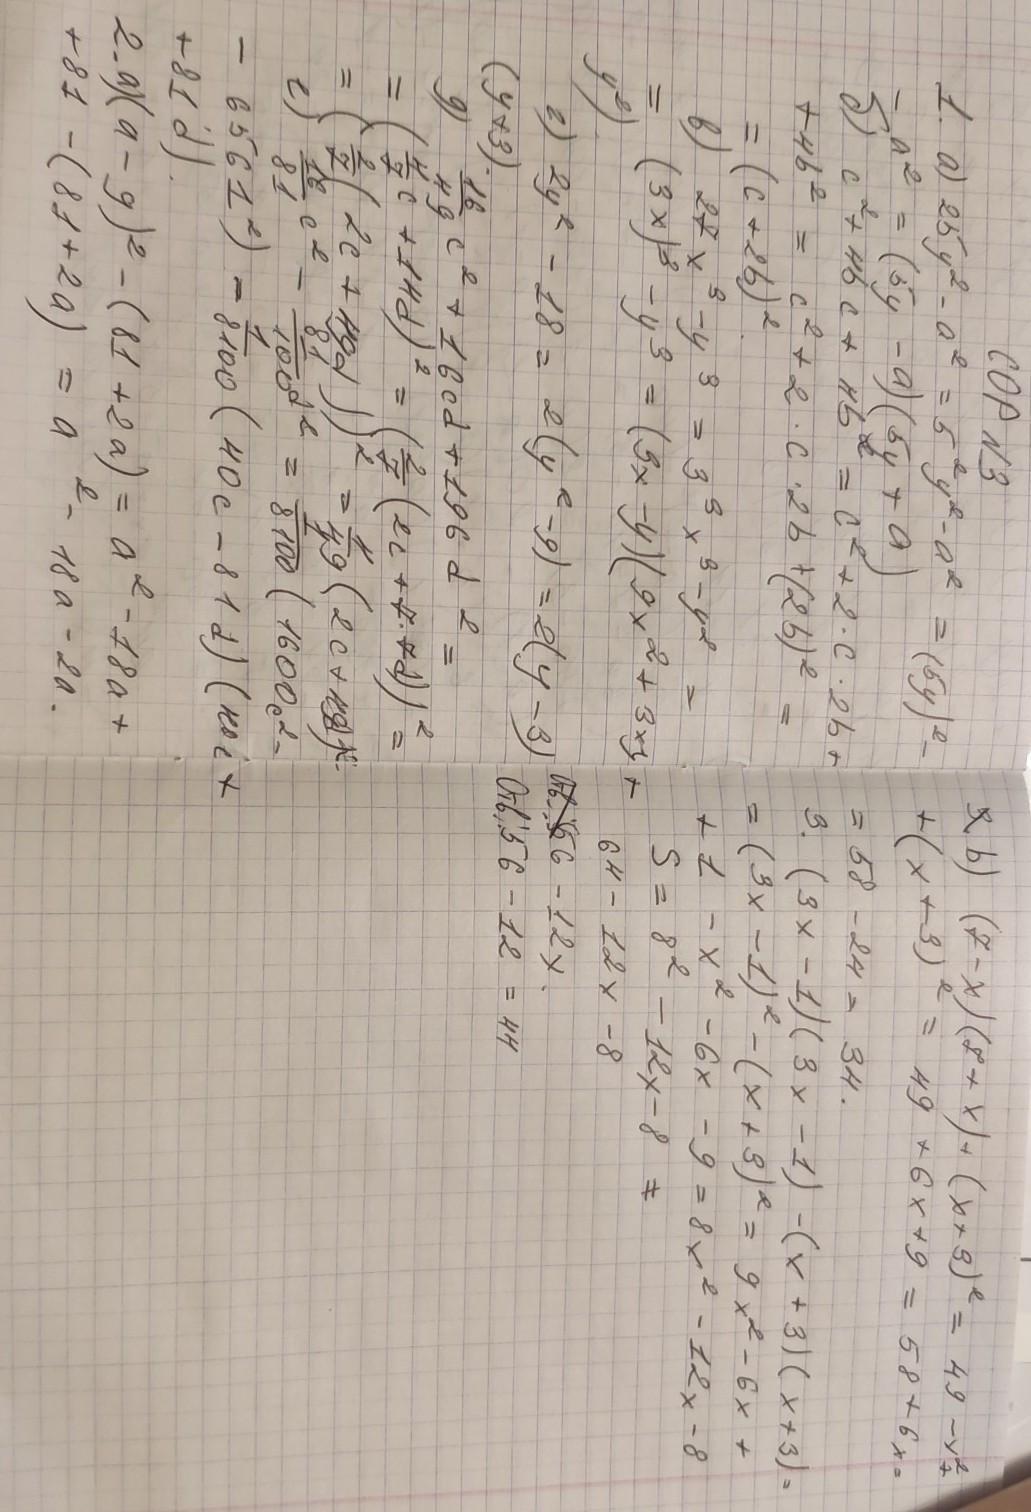 СОР №3
1. а) 25y² - a² = 5²y² - a² = (5y)² -
- a² = (5y - a)(5y + a)
б) c² + 4bc + 4b² = c² + 2·c·2b +
+ 4b² = c² + 2·c·2b + (2b)² =
= (c + 2b)².
в) 27x³ - y³ = 3³x³ - y² =
= (3x)³ - y³ = (3x - y)(9x² + 3xy +
y²).
г) 2y² - 18 = 2(y² - 9) = 2(y - 3)
(y+3).
g) 16/49 c² + 16cd + 196d² =
= (4/7 c + 14d)² = (2/7 (2c + 7·7d))² =
= (2/7 (2c + 49d))² = 4/49 (2c + 49d)².
е) 16/81 c² - 81/100 d² = 1/8100 (1600c² -
- 6561²) = 1/8100 (40c - 81d)(40c +
+ 81d).
2. а) (a - 9)² - (81 + 2a) = a² - 18a +
+ 81 - (81 + 2a) = a² - 18a - 2a.
2. b) (7 - x)(7 + x) + (x + 3)² = 49 - x² +
+ (x + 3)² = 49 + 6x + 9 = 58 + 6x =
= 58 - 24 = 34.
3. (3x - 1)(3x - 1) - (x + 3)(x + 3) =
= (3x - 1)² - (x + 3)² = 9x² - 6x +
+ 1 - x² - 6x - 9 = 8x² - 12x - 8
S = 8² - 12x - 8 =
64 - 12x - 8
Отв.: 56 - 12x.
Отв.: 56 - 12 = 44